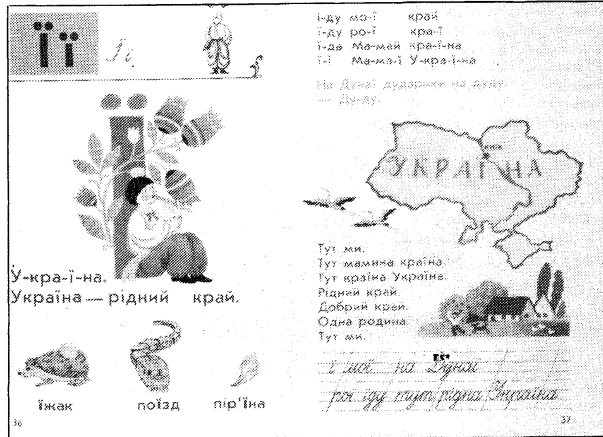 Її Її
У-кра-ї-на.
Україна — рідний край.
їжак поїзд пір'їна
36
ї-ду мо-ї край
ї-ду ро-ї кра-ї
ї-да Ма-май кра-ї-на
ї-ї Ма-ма-ї У-кра-ї-на
На Дунаї дударики на дуду
— Ду-ду.
КИЇВ
УКРАЇНА
Тут ми.
Тут мамина країна.
Тут країна Україна.
Рідний край.
Добрий край.
Одна родина.
Тут ми.
ї мої на Дунаї
рої їду тут рідна Україна
37